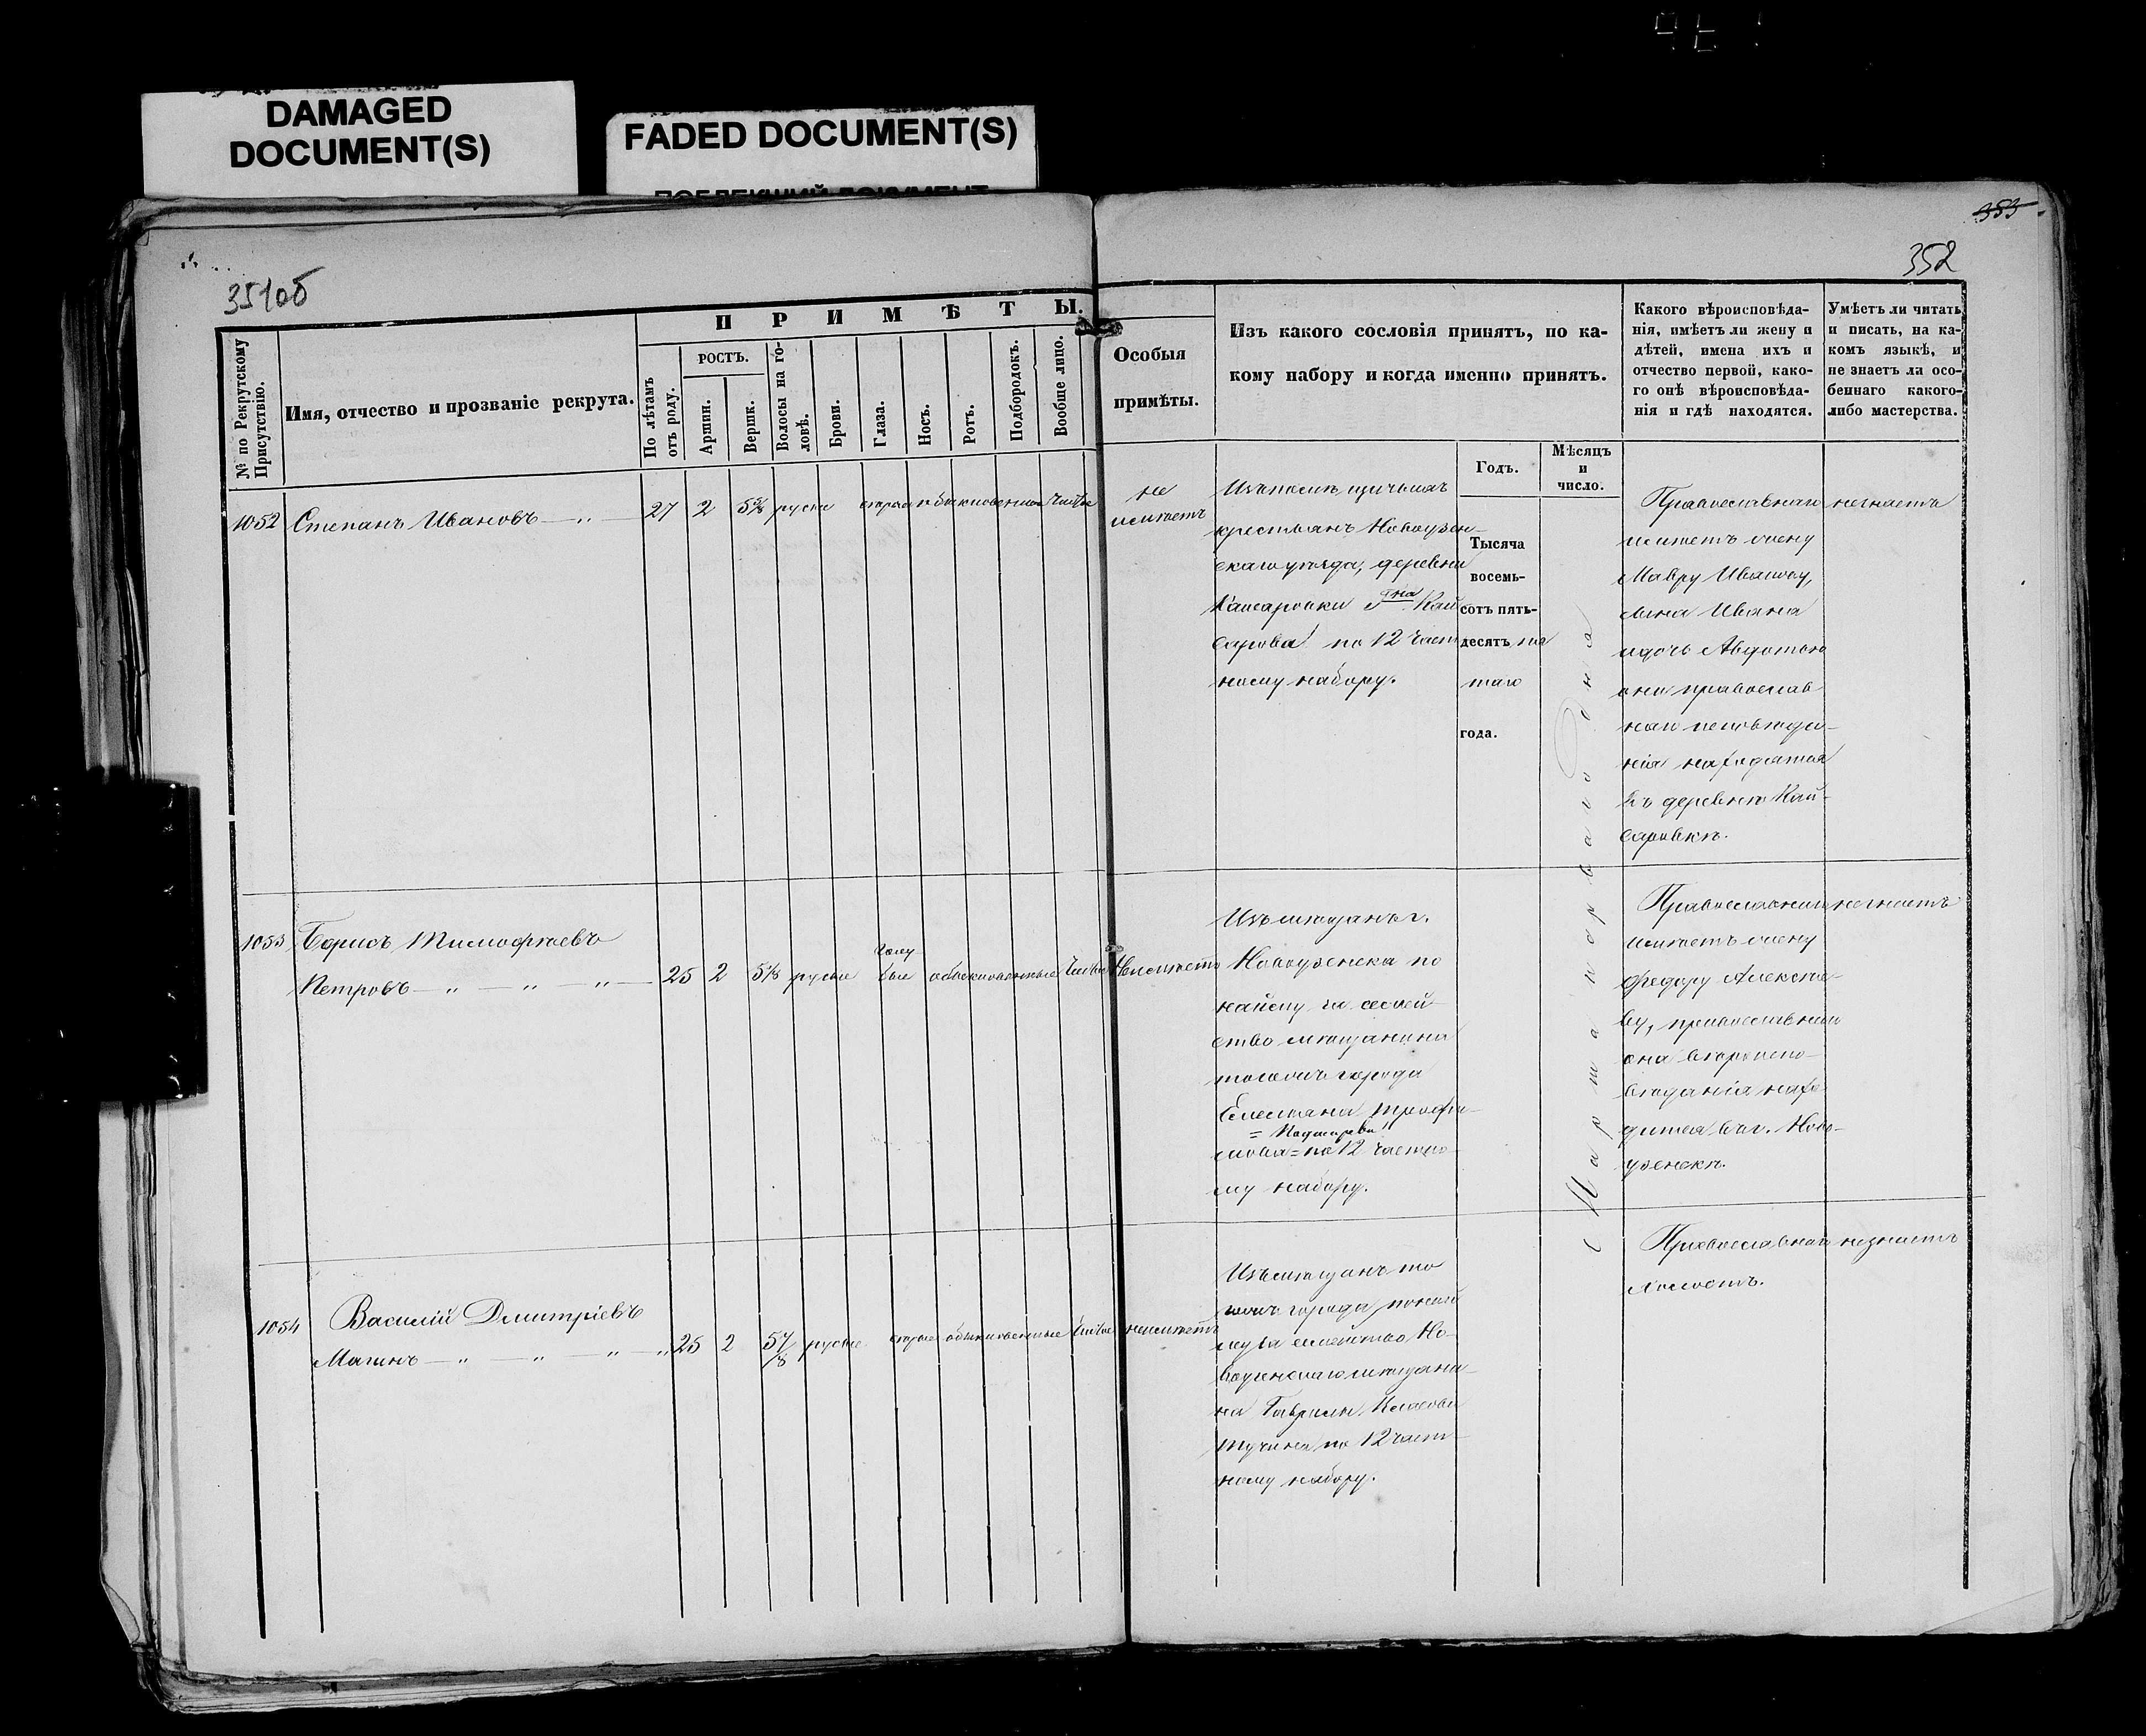 DAMAGED
DOCUMENT(S)
FADED DOCUMENT(S)
353
351об
352
№ по Рекрутскому Присутствію.
Имя, отчество и прозваніе рекрута.
ПРИМѢТЫ.
По лѣтамъ отъ роду.
РОСТЪ.
Аршин.
Вершк.
Волосы на головѣ.
Брови.
Глаза.
Носъ.
Ротъ.
Подбородокъ.
Вообще лицо.
Особыя
примѣты.
Изъ какого сословія принятъ, по ка-
кому набору и когда именно принятъ.
Годъ.
Мѣсяцъ
и
число.
Какого вѣроисповѣда-
нія, имѣетъ ли жену и
дѣтей, имена ихъ и
отчество первой, како-
го онѣ вѣроисповѣда-
нія и гдѣ находятся.
Умѣетъ ли читать
и писать, на ка-
комъ языкѣ, и
не знаетъ ли осо-
беннаго какого-
либо мастерства.
1052 Степанъ Ивановъ 27 2 5 5/8 русые сѣрые обыкновенные чистое
не
имѣетъ
Изъ помѣщичьихъ
крестьянъ Новоузен-
скаго уѣзда, деревни
Кайсаровки Гна Кай
сарова по 12 част
ному набору.
Тысяча
восемь-
сотъ пять-
десятъ пя
таго
года.
Марта перваго дня
Православнаго
имѣетъ жену
Мавру Иванову,
сына Ивана
и дочь Авдотью
они православ
наго исповѣда-
нія находятся
въ деревнѣ Кай-
саровкѣ.
незнаетъ
1053 Борисъ Тимофѣевъ
Петровъ 25 2 5 1/8 русые голу
бые обыкновенные чистое Неимѣетъ
Изъ мѣщанъ г.
Новоузенска по
найму за семей
ство мѣщанина
тогожъ города
Емельяна Трофи-
= Подмарева
мова = по 12 частно
му набору.
Православнаго
имѣетъ жену
Федору Алексѣе-
ву, православнаго
она вѣроиспо-
вѣданія нахо
дится въ г. Ново-
узенскѣ.
незнаетъ
1054 Василій Дмитріевъ
25 2 русые сѣрые обыкновенные чистое неимѣетъ
Изъ мѣщанъ то
гожъ города по най
му за семейство Но-
воузенскаго мѣщани-
на Гаврилы Власова
по 12 част-
ному набору.
Православнаго
холостъ.
незнаетъ